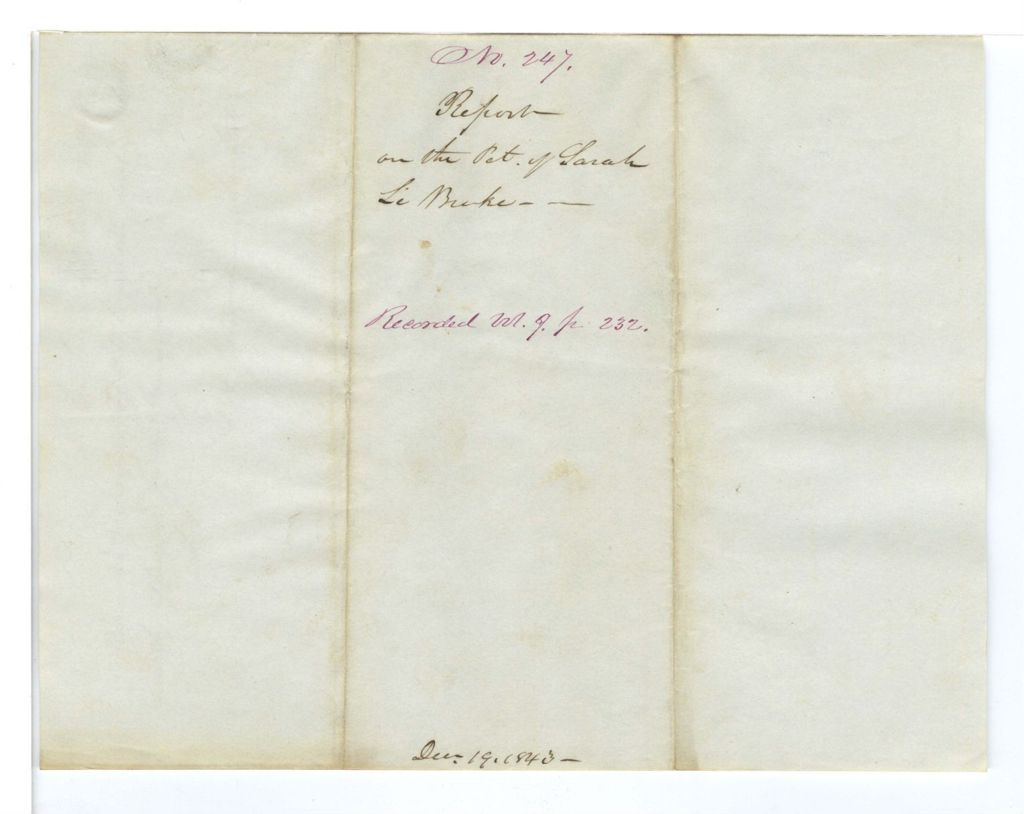 No. 247.
Report
on the Pet. of Sarah
Le Broke - —
Recorded Vol. 9. p. 232.
Dec. 19. 1843 —